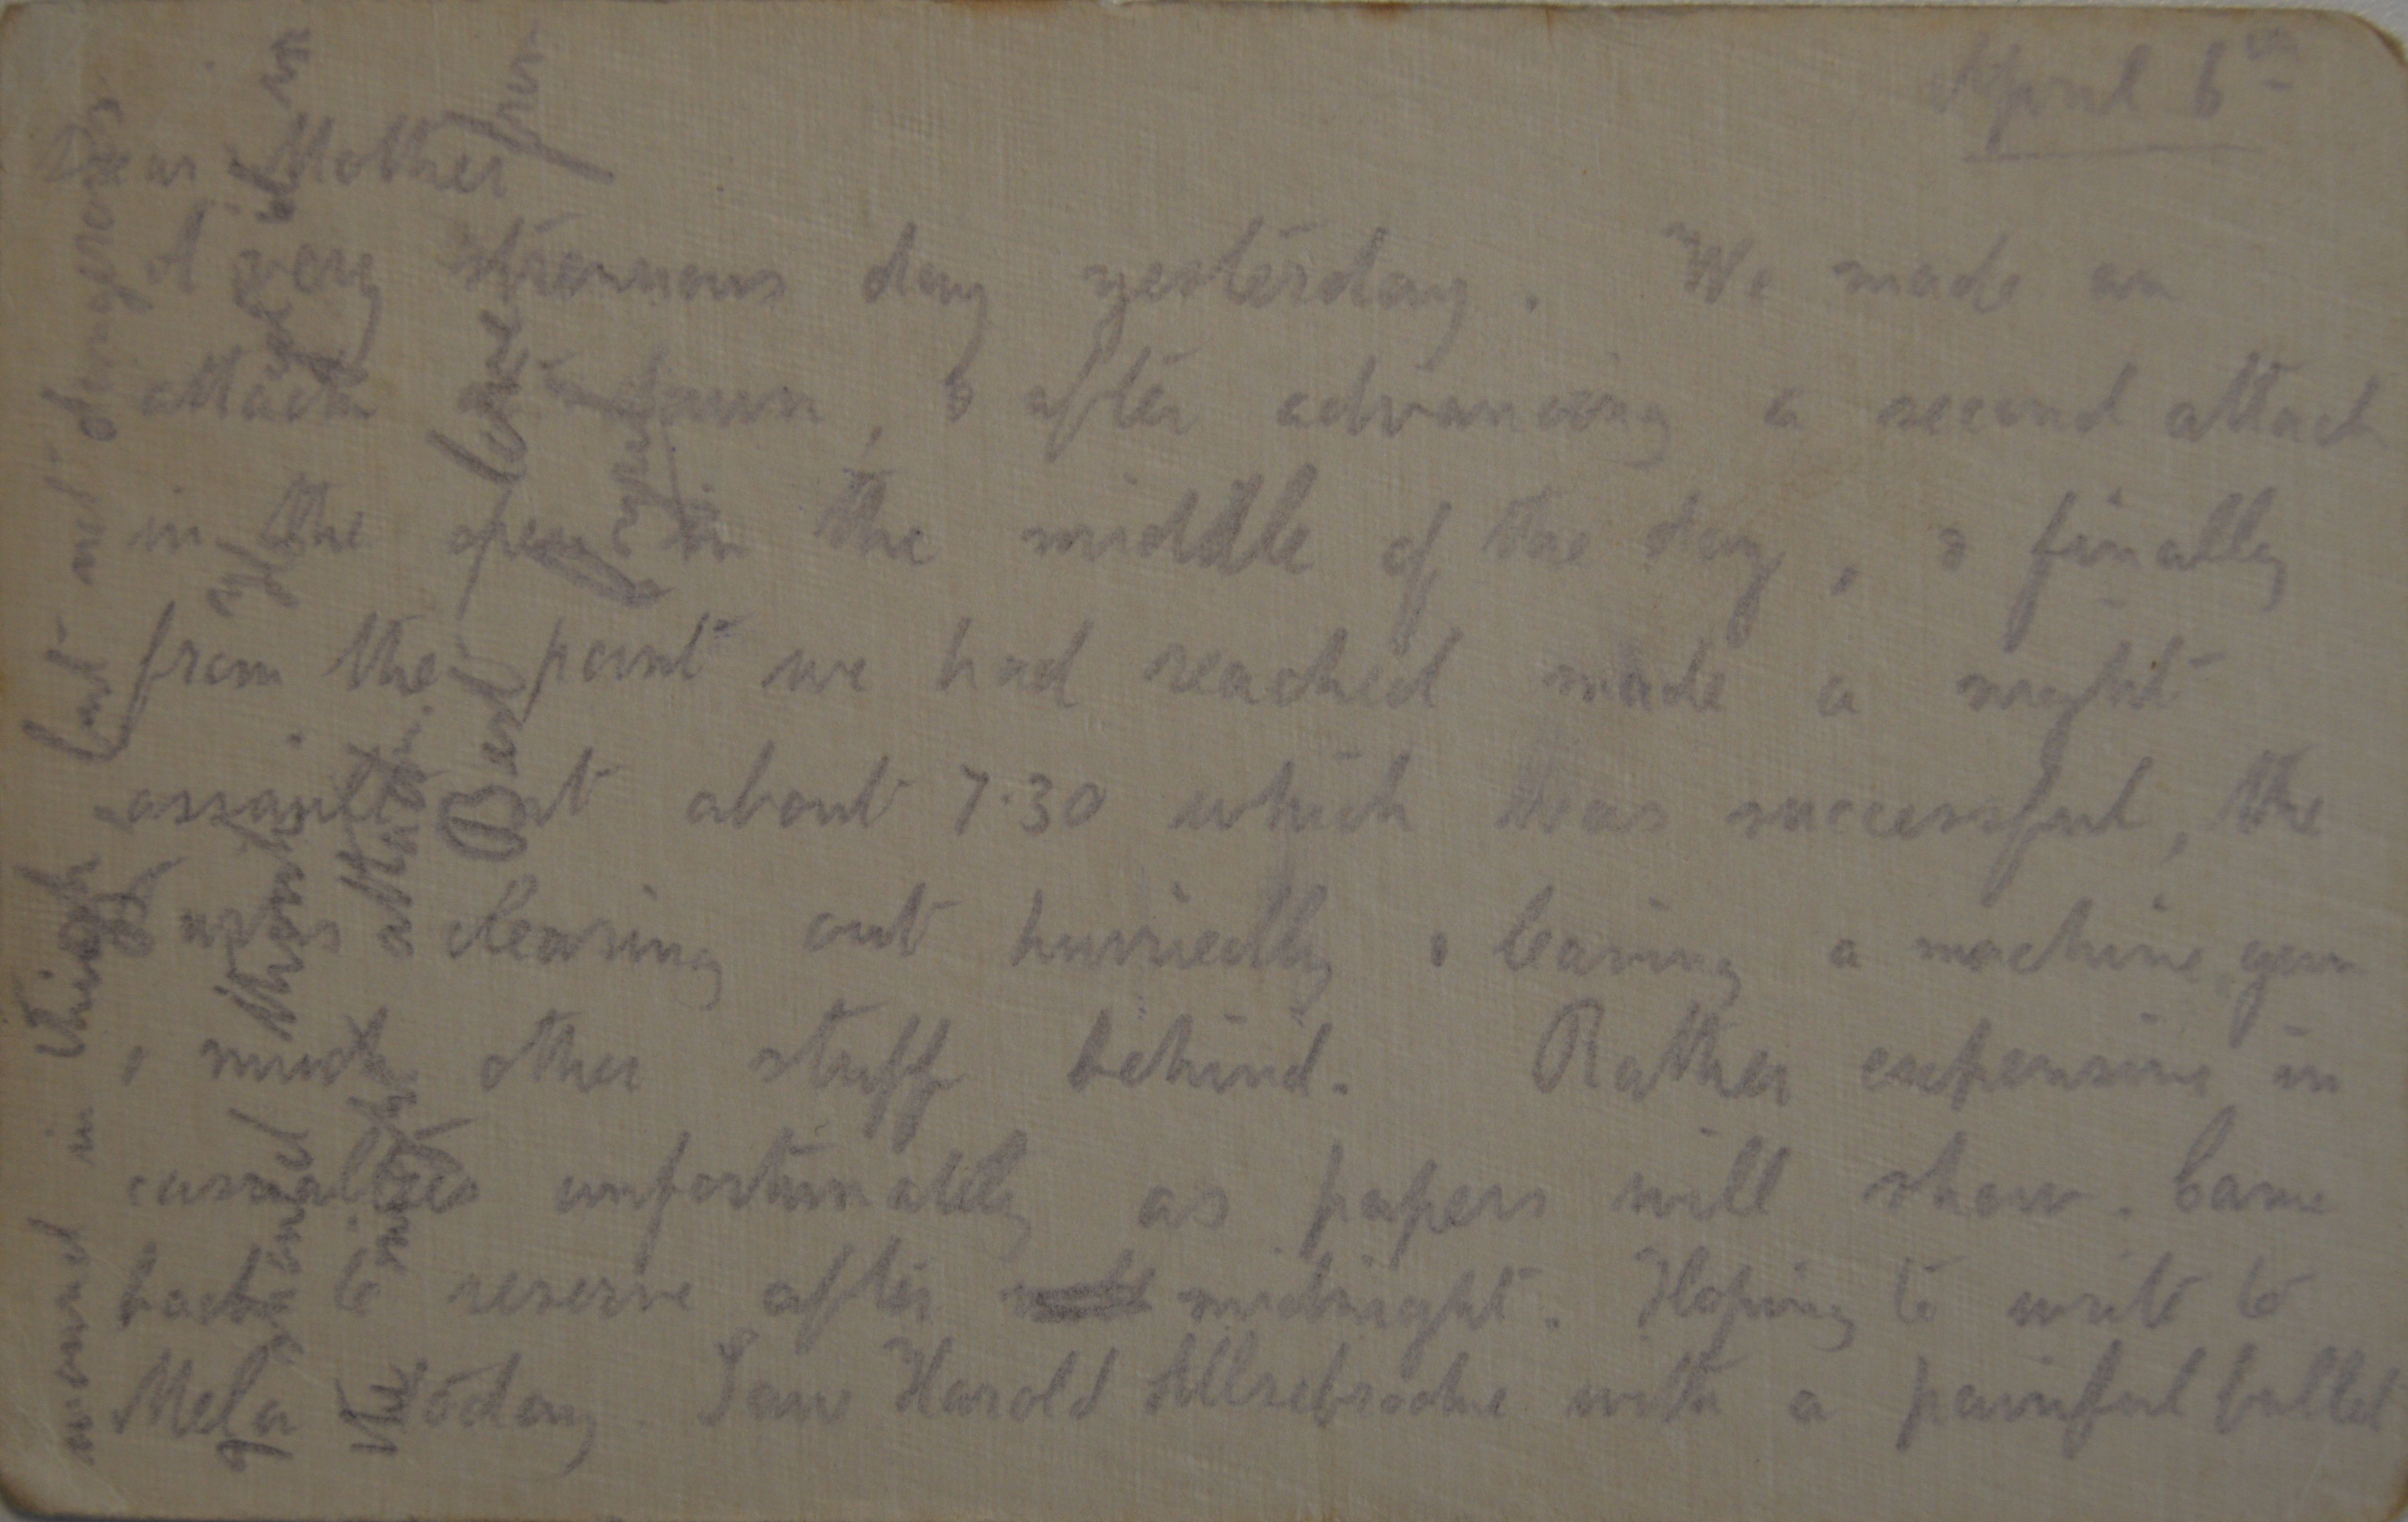 April 6th
Dear Mother
A very strenuous day yesterday. We made an
attack at dawn, & after advancing a second attack
in the open in the middle of the day, & finally
from the point we had reached made a night
assault at about 7.30 which was successful, the
clearing out hurriedly & leaving a machine gun
& much other stuff behind. Rather expensive in
casualties unfortunately as papers will show. Came
back to reserve after midnight. Hoping to write to
Mela today. Saw Harold Allsebrooke with a painful bullet
wound in thigh, but not dangerous
joined
the
Best love from